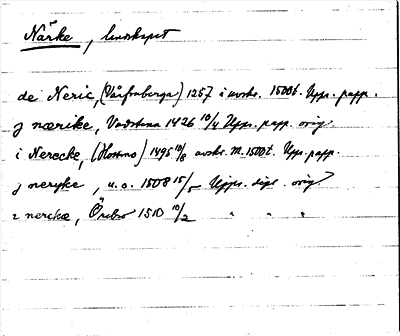 Närke, landskapet
de Neric, (Vårfruberga) 1257 i avskr. 1500t. Upps. papp.
j nærike, Vadstena 1426 10/4 Upps. papp. orig.
i Nerocke, 1495 10/8 avskr. m. 1500t. Upps. papp.
j neryke, u.o. 1508 15/5 Upps. dipl. orig.
i nerckæ, Örebro 1510 10/2 " " "